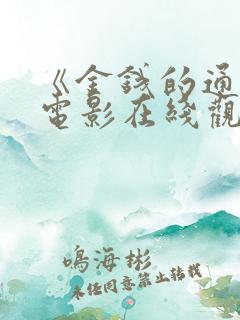 《金錢的通
電影在綫觀
鳴海彬
未任同意禁止轉載